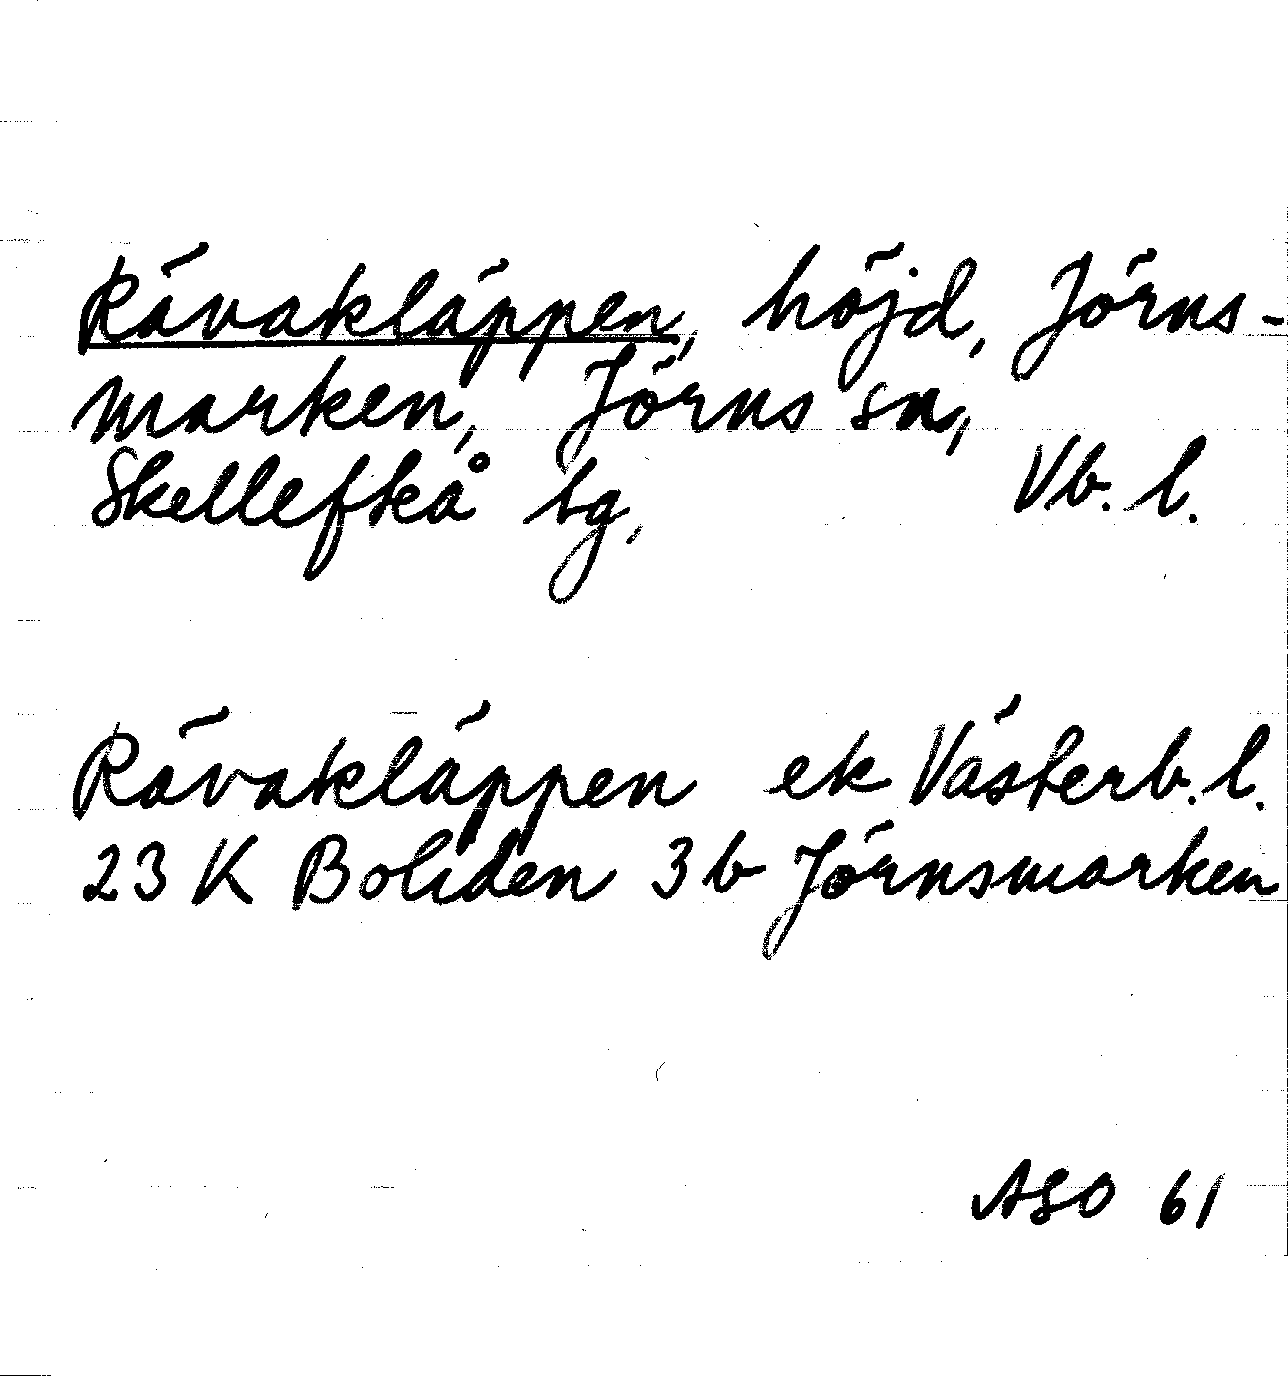 Rävakläppen, höjd, Jörns-
marken, Jörns sn,
Skellefteå tg, Vb. l.
Rävakläppen ek Västerb. l.
23 K Boliden 3 b Jörnsmarken
ASO 61